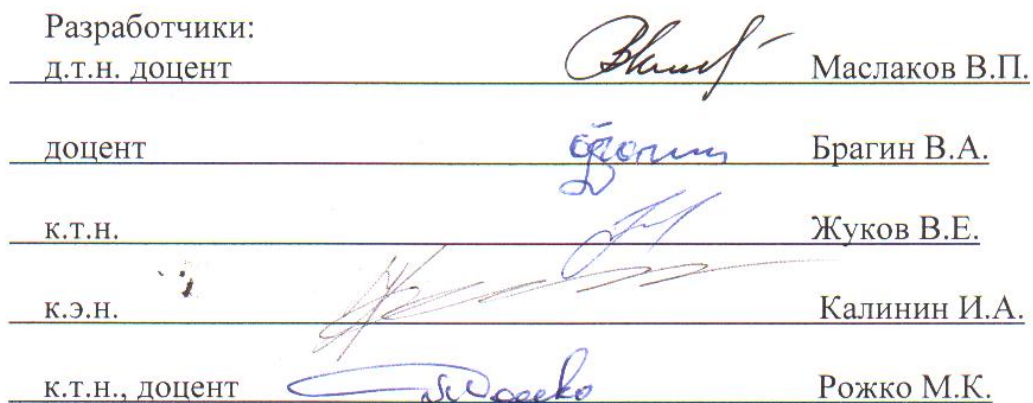 Разработчики:
д.т.н. доцент Маслаков В.П.
доцент Брагин В.А.
к.т.н. Жуков В.Е.
к.э.н. Калинин И.А.
к.т.н., доцент Рожко М.К.